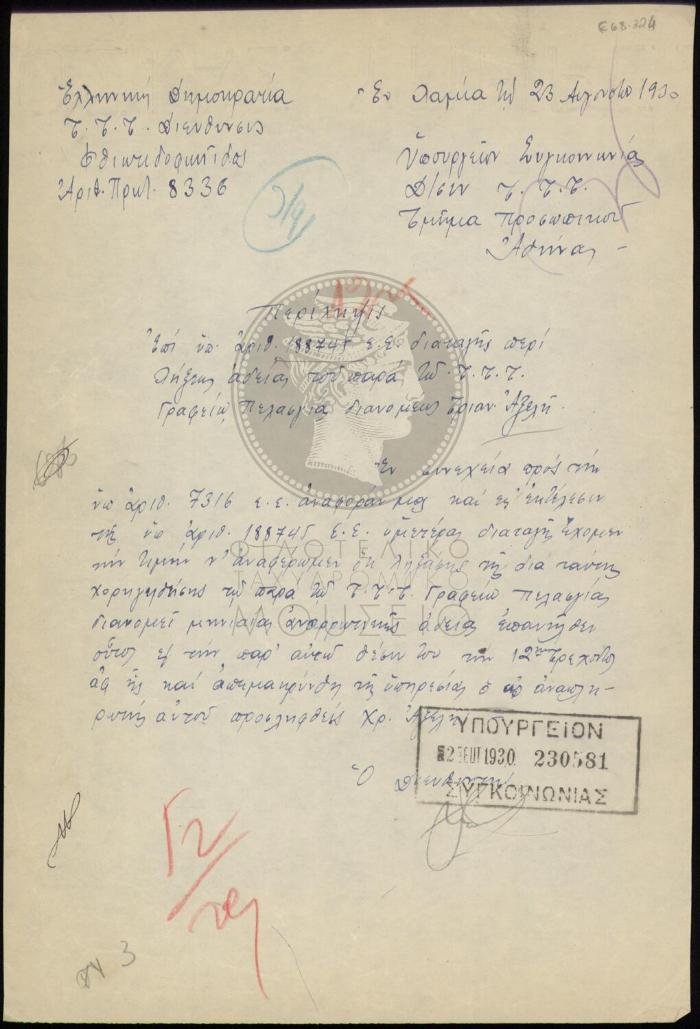 Ε68.324
Ἑλληνική Δημοκρατία
Τ.Τ.Τ. Διεύθυνσις
Φθιωτιδοφωκίδος
Ἀριθ. Πρωτ. 8336
Ἐν Λαμία τῇ 23 Αὐγούστου 1930
Ὑπουργεῖον Συγκοινωνίας
Δ/σιν Τ.Τ.Τ.
Τμῆμα Προσωπικοῦ
Ἀθήνας -
Περίληψις
Ἐπί ὑπ' ἀριθ. 188745 ε.ἔ. διαταγῆς περί
λήξεως ἀδείας τοῦ παρά τῷ Τ.Τ.Τ.
Γραφείῳ Πελασγίας διανομέως Ἀξελῆ.
Ἐν συνεχείᾳ πρός τήν
ὑπ' ἀριθ. 7316 ε.ἔ. ἀναφοράν μας καί εἰς ἐκτέλεσιν
τῆς ὑπ' ἀριθ. 188745 ε.ἔ. ὑμετέρας διαταγῆς ἔχομεν
τήν τιμήν ν' ἀναφέρωμεν ὅτι ληξάσης τῆς διά ταύτης
χορηγηθείσης τῷ παρά τῷ Τ.Τ.Τ. Γραφείῳ Πελασγίας
διανομεῖ μηνιαίας ἀναρρωτικῆς ἀδείας ἐπανῆλθεν
οὗτος εἰς τήν παρ' αὐτῷ θέσιν του τήν 12ην τρέχοντος
ἀφ' ἧς καί ἀπεμακρύνθη τῆς ὑπηρεσίας ὁ ὡς ἀναπλη-
ρωτής αὐτοῦ προσληφθείς Χρ. Ἀξελῆς
Ὁ Διευθυντής
ΥΠΟΥΡΓΕΙΟΝ
2 ΣΕΠΤ 1930 230581
ΣΥΓΚΟΙΝΩΝΙΑΣ
ΦΙΛΟΤΕΛΙΚΟ
ΤΑΧΥΔΡΟΜΙΚΟ
ΜΟΥΣΕΙΟ